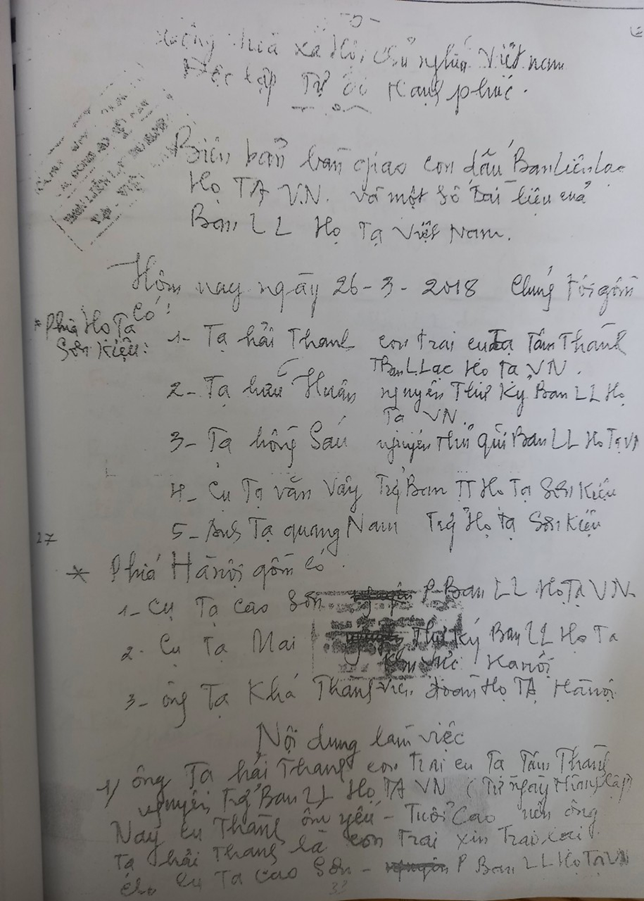 Cộng hoà xã Hội chủ nghĩa Việt nam
Độc lập Tự do Hạnh phúc.
Biên bản bàn giao con dấu Ban Liên lạc
Họ TẠ V.N. và một số tài liệu của
Ban LL Họ Tạ Việt Nam.
Hôm nay ngày 26-3-2018 Chúng tôi gồm
Có:
* Phía Họ Tạ
Sơn Kiệu:
1- Tạ hải Thanh con trai cụ Tạ Tấn Thành
TBan LLạc Họ Tạ VN.
2- Tạ hữu Huân nguyên Thư Ký Ban LL Họ
Tạ VN.
3- Tạ hồng Sáu nguyên Thủ quĩ Ban LL Họ Tạ VN
4- Cụ Tạ văn Vây Trg Ban TT Họ Tạ Sơn Kiệu
5- Anh Tạ quang Nam Trg Họ Tạ Sơn Kiệu
17
* Phía Hà nội gồm có
1- Cụ Tạ Cao Sơn P Ban LL Họ Tạ VN
2- Cụ Tạ Mai Thư ký Ban LL Họ Tạ
Khu vực Hà nội
3- ông Tạ Khá Thành viên đoàn Họ TẠ Hà nội
Nội dung làm việc
1/ ông Tạ hải Thanh con trai cụ Tạ Tấn Thành
nguyên Trg Ban LL Họ TẠ VN
Nay cụ Thành ốm yếu - Tuổi Cao nên ông
Tạ hải Thanh là con Trai xin
cho cụ Tạ Cao Sơn - P Ban LL Họ Tạ VN
33